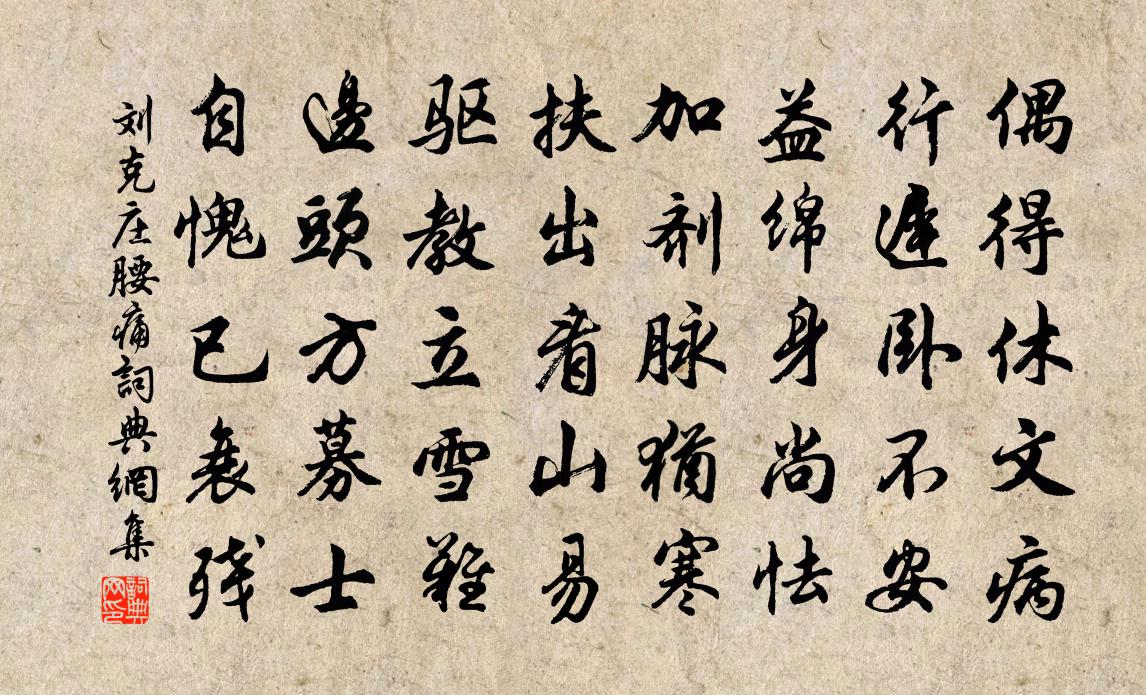 偶得休文病
行遲卧不安
益绵身尚怯
加剂脉猶寒
扶出看山易
驱教立雪難
邊頭方募士
自愧已衰残
刘克庄腰痛詞典網集
詞典网印